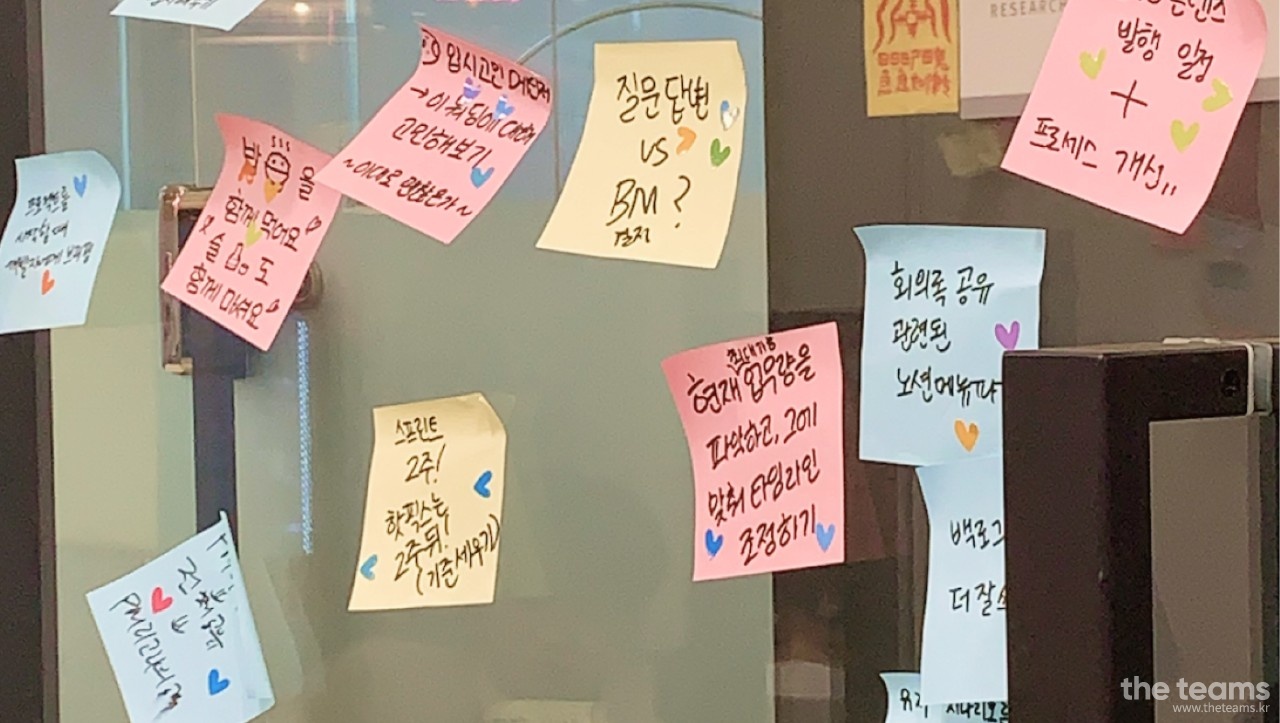 프로젝트를
시작할 때
개발자에게 브리핑
밥을
함께 먹어요
술도
함께 마셔요
입시고민
→ 이 워딩에 대해
고민해보기
~이대로 괜찮은가~
질문답변
vs
BM?
결제
RESEARCH
발행 일정
+
프로세스 개선..
회의록 공유
관련된
노션메뉴
현재 업무량을
파악하고, 그에
맞춰 타임라인
조정하기
스프린트
2주!
핫픽스는,
2주뒤!
(기준세우기)
백로그
더 잘
시나리오
the teams
www.theteams.kr